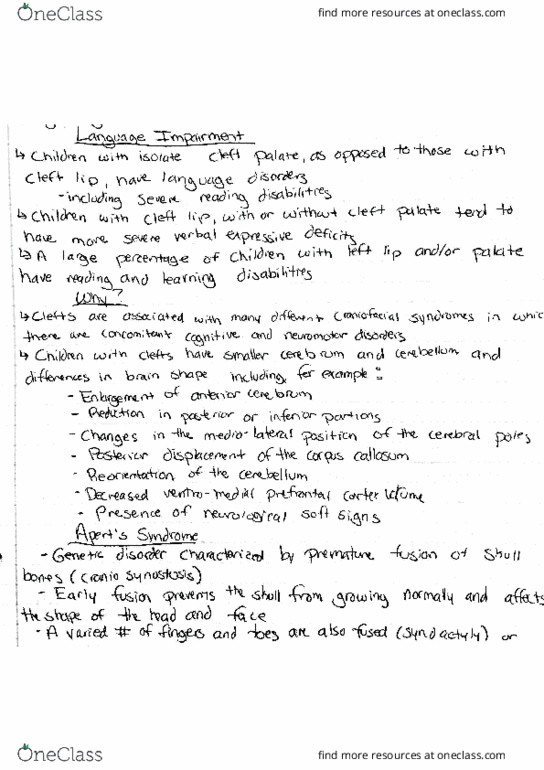 OneClass
find more resources at oneclass.com
Language Impairment
↳ Children with isolate cleft palate, as opposed to those with
cleft lip, have language disorders
-including severe reading disabilities
↳ Children with cleft lip, with or without cleft palate tend to
have more severe verbal expressive deficits
↳ A large percentage of children with left lip and/or palate
have reading and learning disabilities
Why?
↳ Clefts are associated with many different craniofacial syndromes in whic
there are concomitant cognitive and neuromotor disorders
↳ Children with clefts have smaller cerebrum and cerebellum and
differences in brain shape including, for example:
- Enlargement of anterior cerebrum
- Reduction in posterior or inferior portions
- Changes in the medio-lateral position of the cerebral poles
- Posterior displacement of the corpus callosum
- Reorientation of the cerebellum
- Decreased ventro-medial prefrontal cortex volume
- Presence of neurological soft signs
Apert's Syndrome
- Genetic disorder characterized by premature fusion of skull
bones (cranio synostosis)
- Early fusion prevents the skull from growing normally and affects
the shape of the head and face
- A varied # of fingers and toes are also fused (syndactyly) or
OneClass
find more resources at oneclass.com